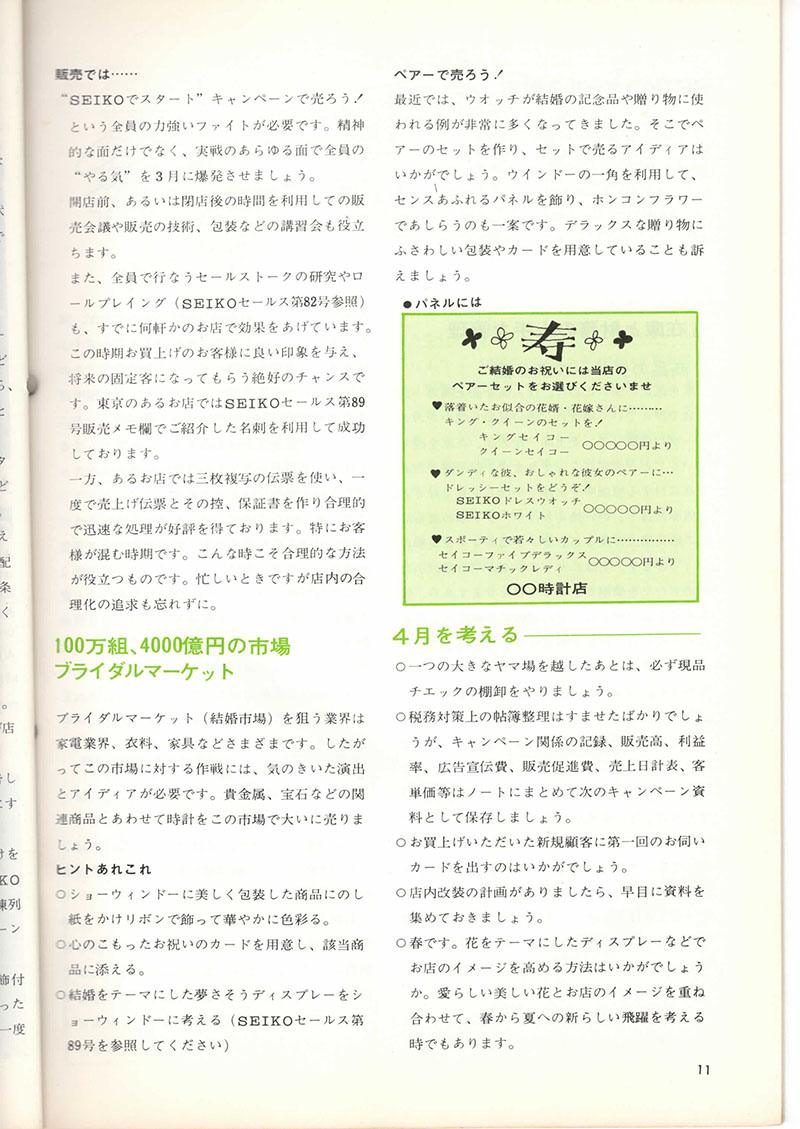 販売では……
“SEIKOでスタート” キャンペーンで売ろう!
という全員の力強いファイトが必要です。精神
的な面だけでなく、実戦のあらゆる面で全員の
“やる気” を3月に爆発させましょう。
開店前、あるいは閉店後の時間を利用しての販
売会議や販売の技術、包装などの講習会も役立
ちます。
また、全員で行なうセールストークの研究やロ
ールプレイング(SEIKOセールス第82号参照)
も、すでに何軒かのお店で効果をあげています。
この時期お買上げのお客様に良い印象を与え、
将来の固定客になってもらう絶好のチャンスで
す。東京のあるお店ではSEIKOセールス第89
号販売メモ欄でご紹介した名刺を利用して成功
しております。
一方、あるお店では三枚複写の伝票を使い、一
度で売上げ伝票とその控、保証書を作り合理的
で迅速な処理が好評を得ております。特にお客
様が混む時期です。こんな時こそ合理的な方法
が役立つものです。忙しいときですが店内の合
理化の追求も忘れずに。
100万組、4000億円の市場
ブライダルマーケット
ブライダルマーケット(結婚市場)を狙う業界は
家電業界、衣料、家具などさまざまです。したが
ってこの市場に対する作戦には、気のきいた演出
とアイディアが必要です。貴金属、宝石などの関
連商品とあわせて時計をこの市場で大いに売りま
しょう。
ヒントあれこれ
○ショーウィンドーに美しく包装した商品にのし
紙をかけリボンで飾って華やかに色彩る。
○心のこもったお祝いのカードを用意し、該当商
品に添える。
○結婚をテーマにした夢さそうディスプレーをシ
ョーウィンドーに考える(SEIKOセールス第
89号を参照してください)
ペアーで売ろう!
最近では、ウオッチが結婚の記念品や贈り物に使
われる例が非常に多くなってきました。そこでペ
アーのセットを作り、セットで売るアイディアは
いかがでしょう。ウインドーの一角を利用して、
センスあふれるパネルを飾り、ホンコンフラワー
であしらうのも一案です。デラックスな贈り物に
ふさわしい包装やカードを用意していることも訴
えましょう。
●パネルには
寿
ご結婚のお祝いには当店の
ペアーセットをお選びくださいませ
♥落着いたお似合の花婿・花嫁さんに………
キング・クイーンのセットを!
キングセイコー
クイーンセイコー
○○○○○円より
♥ダンディな彼、おしゃれな彼女のペアーに…
ドレッシーセットをどうぞ!
SEIKOドレスウオッチ
SEIKOホワイト
○○○○○円より
♥スポーティで若々しいカップルに……………
セイコーファイブデラックス
セイコーマチックレディ
○○○○○円より
○○時計店
4月を考える
○一つの大きなヤマ場を越したあとは、必ず現品
チエックの棚卸をやりましょう。
○税務対策上の帖簿整理はすませたばかりでしょ
うが、キャンペーン関係の記録、販売高、利益
率、広告宣伝費、販売促進費、売上日計表、客
単価等はノートにまとめて次のキャンペーン資
料として保存しましょう。
○お買上げいただいた新規顧客に第一回のお伺い
カードを出すのはいかがでしょう。
○店内改装の計画がありましたら、早目に資料を
集めておきましょう。
○春です。花をテーマにしたディスプレーなどで
お店のイメージを高める方法はいかがでしょう
か。愛らしい美しい花とお店のイメージを重ね
合わせて、春から夏への新らしい飛躍を考える
時でもあります。
11